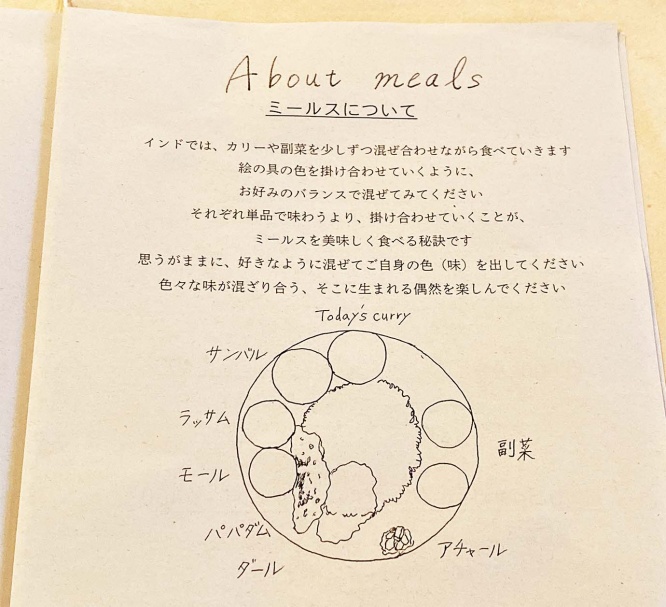 About meals
ミールスについて
インドでは、カリーや副菜を少しずつ混ぜ合わせながら食べていきます
絵の具の色を掛け合わせていくように、
お好みのバランスで混ぜてみてください
それぞれ単品で味わうより、掛け合わせていくことが、
ミールスを美味しく食べる秘訣です
思うがままに、好きなように混ぜてご自身の色（味）を出してください
色々な味が混ざり合う、そこに生まれる偶然を楽しんでください
Today's curry
サンバル
ラッサム
副菜
モール
パパダム
アチャール
ダール